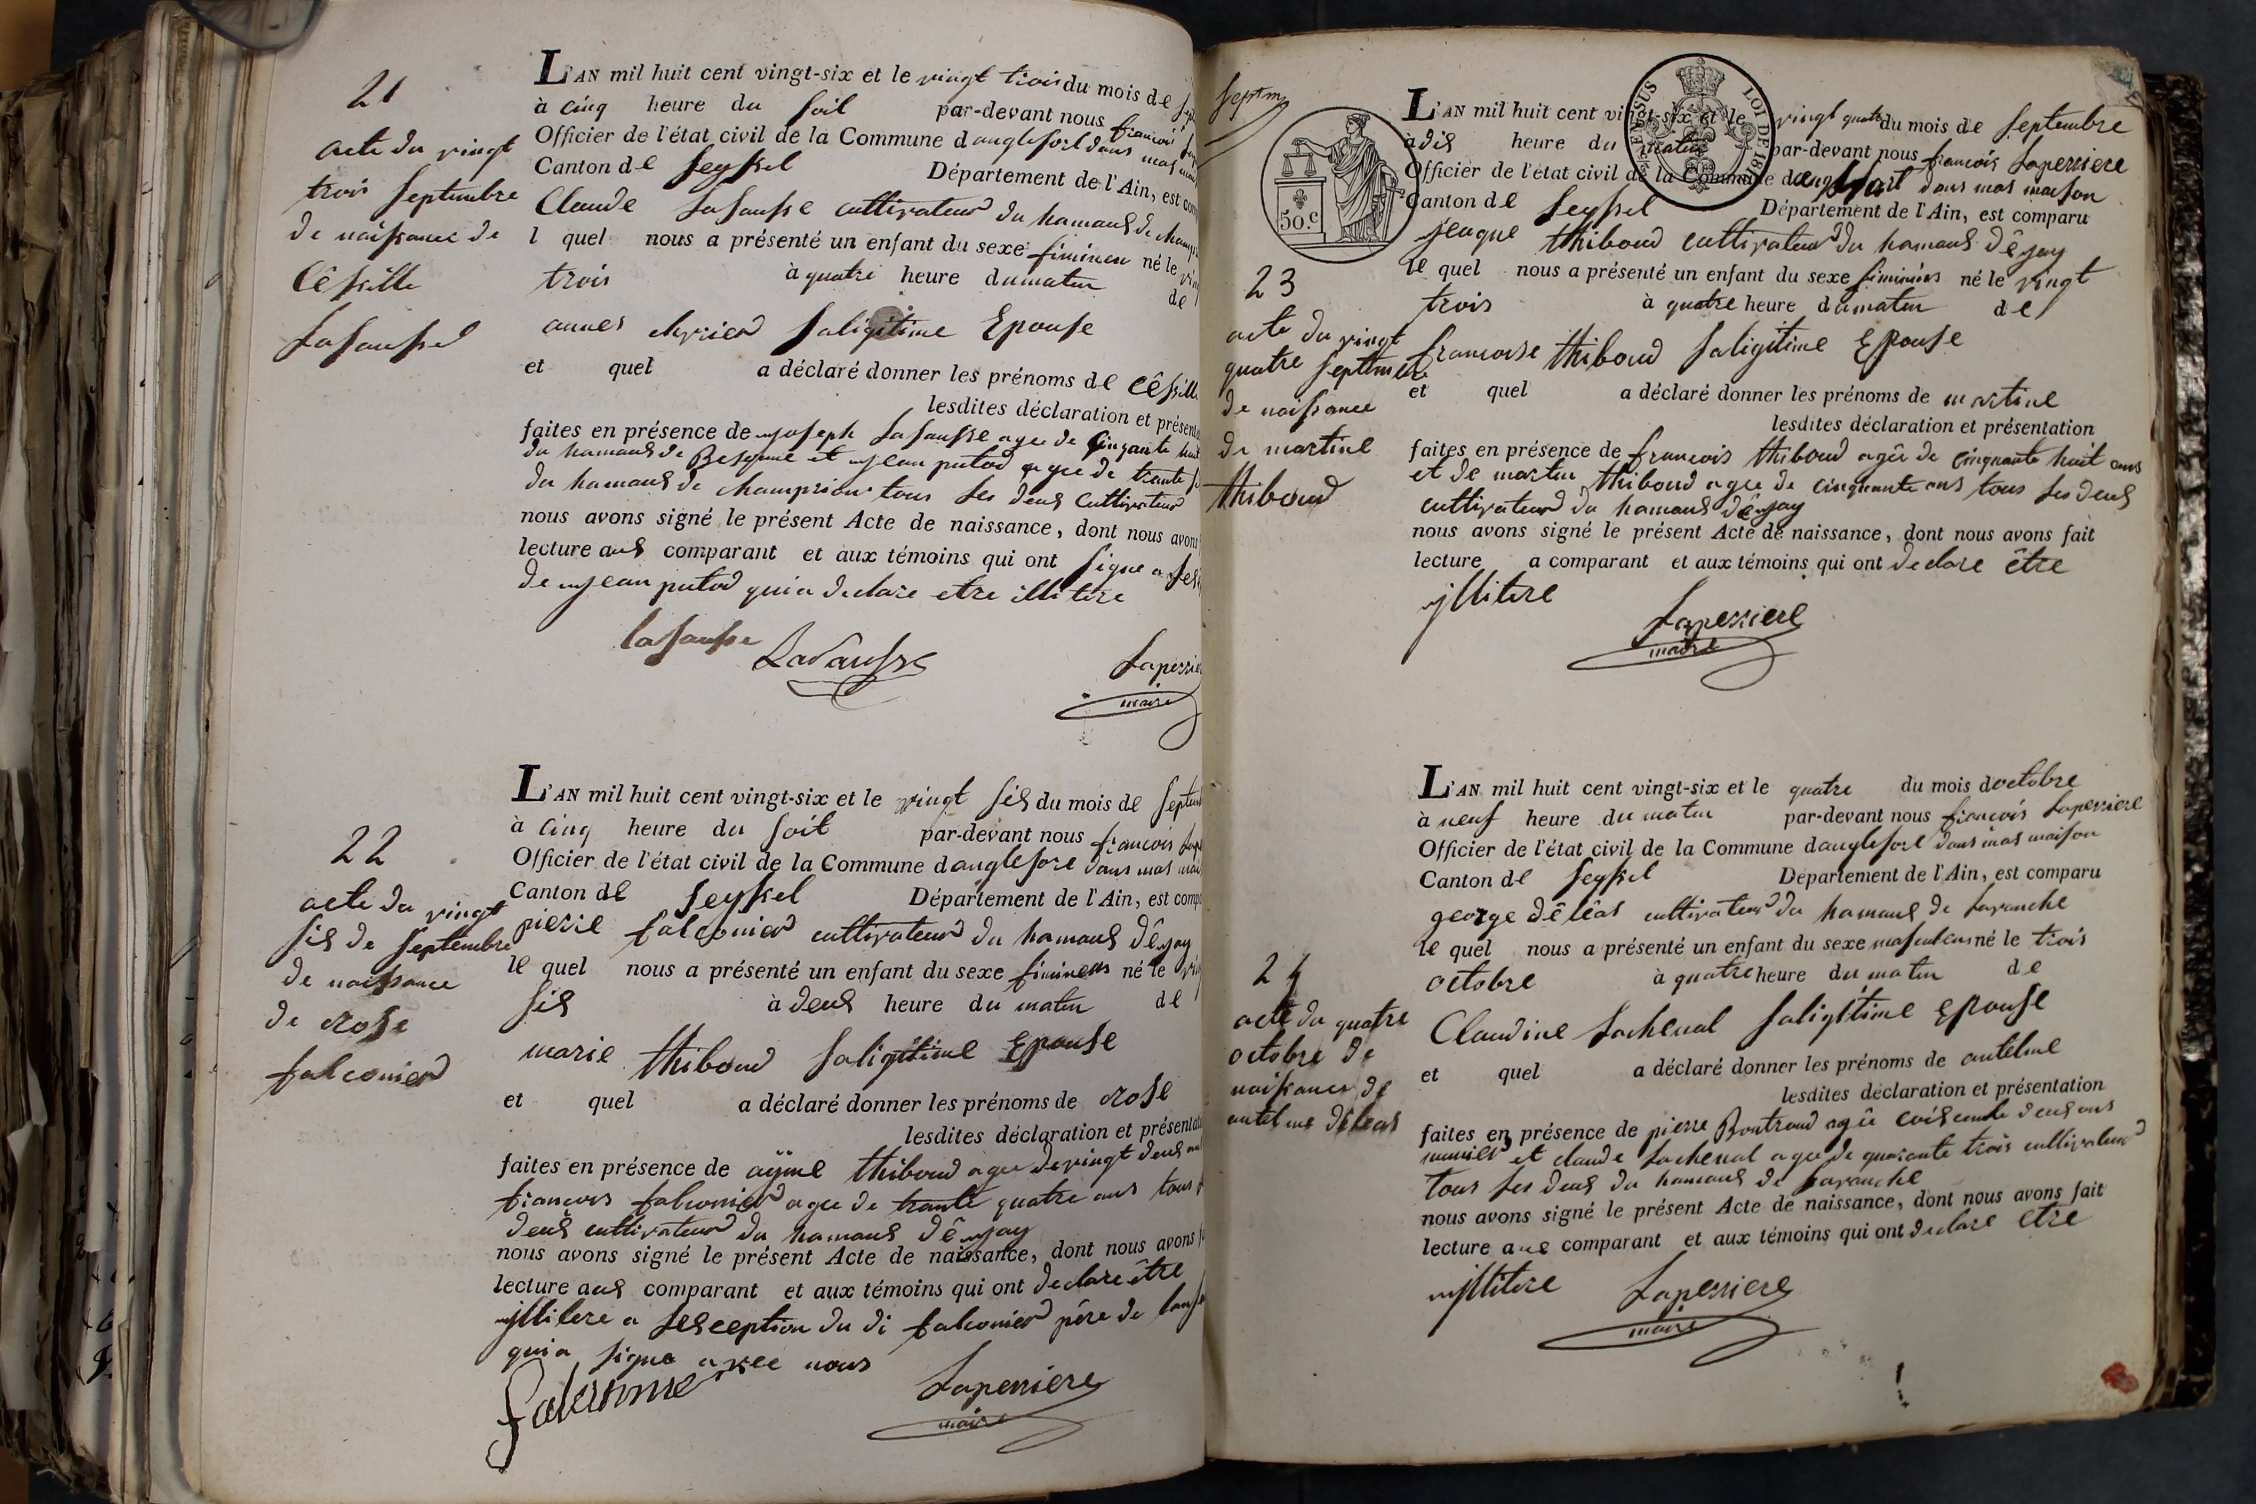 21
acte du vingt
trois Septembre
de naissance de
Cêssille
Lasausse
L'AN mil huit cent vingt-six et le vingt trois du mois de
à cinq heure du soil par-devant nous francois
Officier de l'état civil de la Commune danglefort dans mas
Canton de Seyssel Département de l'Ain, est
Claude Lasausse cultivateur du hamaus de
l quel nous a présenté un enfant du sexe fiminen né le
trois à quatre heure du matin de
annes saligitime Epouse
et quel a déclaré donner les prénoms de Cêssille
lesdites déclaration et
faites en présence de joseph Lasausse agee de cinqante huit
du hamaus de et jean putod agee de trante
du hamaus de tous les deus cultivateur
nous avons signé le présent Acte de naissance, dont nous avons
lecture aus comparant et aux témoins qui ont signe a
de jean putod qui a declare etre illitere
lasausse
Lasausse
Laperriere
maire
22
acte du vingt
sis de Septembre
de naissance
de rose
falconier
L'AN mil huit cent vingt-six et le vingt sis du mois de
à cinq heure du soit par-devant nous francois
Officier de l'état civil de la Commune danglefore dans mas
Canton de Seyssel Département de l'Ain, est
pierre falconier cultivateur du hamaus dêjay
le quel nous a présenté un enfant du sexe fiminens né le
sis à deus heure du matin de
marie thiboud saligitime Epouse
et quel a déclaré donner les prénoms de rose
lesdites déclaration et
faites en présence de aÿme thiboud agee de vingt deus
francois falconier agee de trante quatre ans tous
deus cultivateur du hamaus dêjay
nous avons signé le présent Acte de naissance, dont nous avons
lecture aus comparant et aux témoins qui ont declare être
jllitere a sesception du di falconier père de
qui a signe avec nous
Laperriere
maire
50.c
LOI DE 18
23
acte du vingt
quatre Septembre
de naissance
de martine
thiboud
L'AN mil huit cent vingt-six et le vingt quatre du mois de Septembre
à dis heure du matin par-devant nous francois Laperriere
Officier de l'état civil de la Commune dans mas maison
Canton de Seyssel Département de l'Ain, est comparu
jeaque thiboud cultivateur du hamaus dêjay
le quel nous a présenté un enfant du sexe fiminins né le vingt
trois à quatre heure du matin de
francoise thiboud saligitime Epouse
et quel a déclaré donner les prénoms de martine
lesdites déclaration et présentation
faites en présence de francois thiboud agêe de cinquante huit ans
et de martin thiboud agee de cinquante ans tous les deus
cultivateur du hamaus dêjay
nous avons signé le présent Acte de naissance, dont nous avons fait
lecture a comparant et aux témoins qui ont declare être
jllitere
Laperriere
maire
24
acte du quatre
octobre de
naissance de
antelme dêleas
L'AN mil huit cent vingt-six et le quatre du mois doctobre
à neuf heure du matin par-devant nous francois Laperriere
Officier de l'état civil de la Commune danglefore dans mas maison
Canton de Seyssel Département de l'Ain, est comparu
george dêlêas cultivateur du hamaus de Lavanche
le quel nous a présenté un enfant du sexe né le trois
octobre à quatre heure du matin de
Claudine Lachenal saligitime Epouse
et quel a déclaré donner les prénoms de antelme
lesdites déclaration et présentation
faites en présence de pierre agêe deus ans
et claude Lachenal agee de quarante trois cultivateur
tous les deus du hamaus de Lavanche
nous avons signé le présent Acte de naissance, dont nous avons fait
lecture aue comparant et aux témoins qui ont declare etre
jllitere
Laperriere
maire